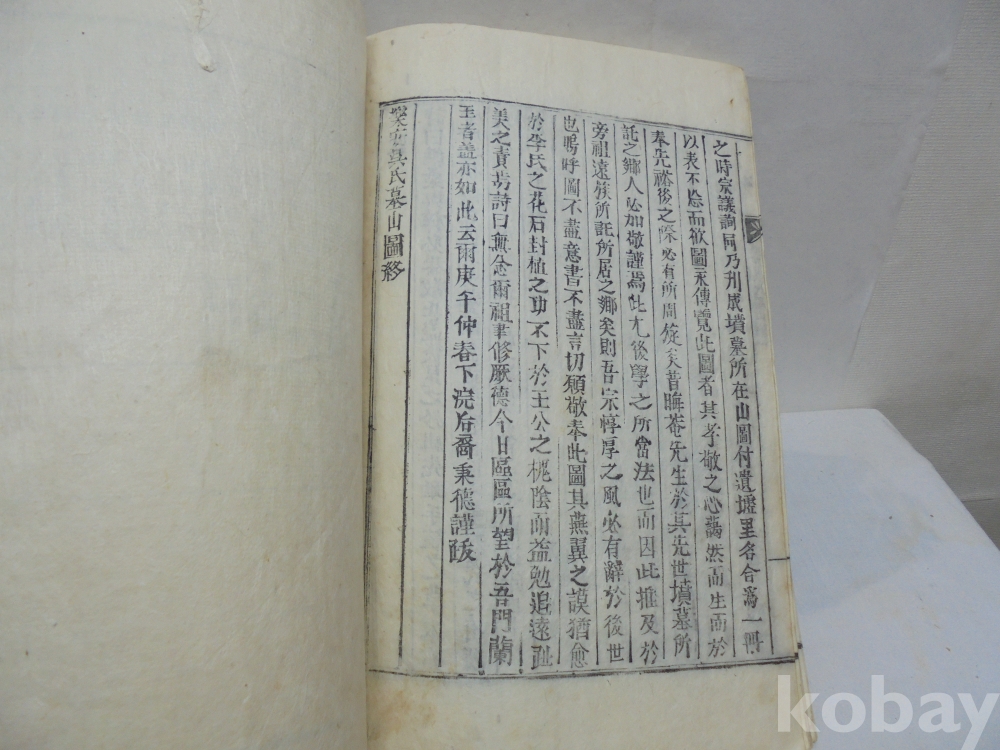 之時宗議詢同乃刋成墳墓所在山圖付遺墟里名合爲一冊
以表不忘而欲圖永傳覽此圖者其孝敬之心藹然而生而於
奉先裕後之際必有所周旋矣昔晦菴先生於其先世墳墓所
託之鄉人必加敬謹焉此尤後學之所當法也而因此推及於
旁祖遠簇所託所居之鄉矣則吾宗惇厚之風必有辭於後世
也嗚呼圖不盡意書不盡言切願敬奉此圖其燕翼之謨猶愈
於李氏之花石封植之功不下於王公之槐陰而益勉追遠趾
美之責哉詩曰無念爾祖聿修厥德今日區區所望於吾門蘭
玉者盖亦如此云爾庚午仲春下浣后裔秉德謹跋
吳氏墓山圖終
kobay